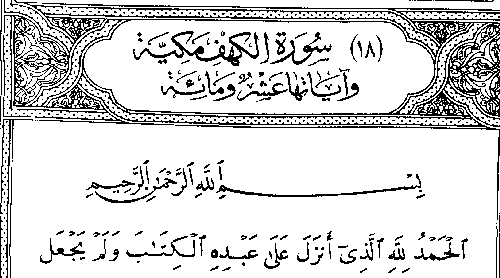 (١٨) سُورَةُ الكَهْفِ مَكِيَّة
وَآيَاتُهَا عَشْرٌ وَمِائَة
بِسْمِ ٱللَّهِ ٱلرَّحْمَٰنِ ٱلرَّحِيمِ
ٱلْحَمْدُ لِلَّهِ ٱلَّذِىٓ أَنزَلَ عَلَىٰ عَبْدِهِ ٱلْكِتَـٰبَ وَلَمْ يَجْعَل